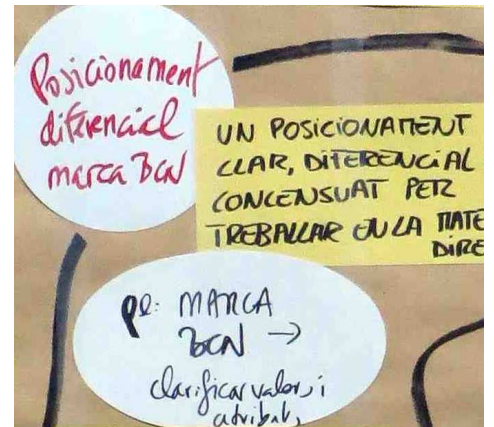 Posicionament
diferencial
marca BCN
UN POSICIONAMENT
CLAR, DIFERENCIAL
CONCENSUAT PER
TREBALLAR EN LA MATE
DIRE
pe: MARCA
BCN →
clarificar valors i
atributs